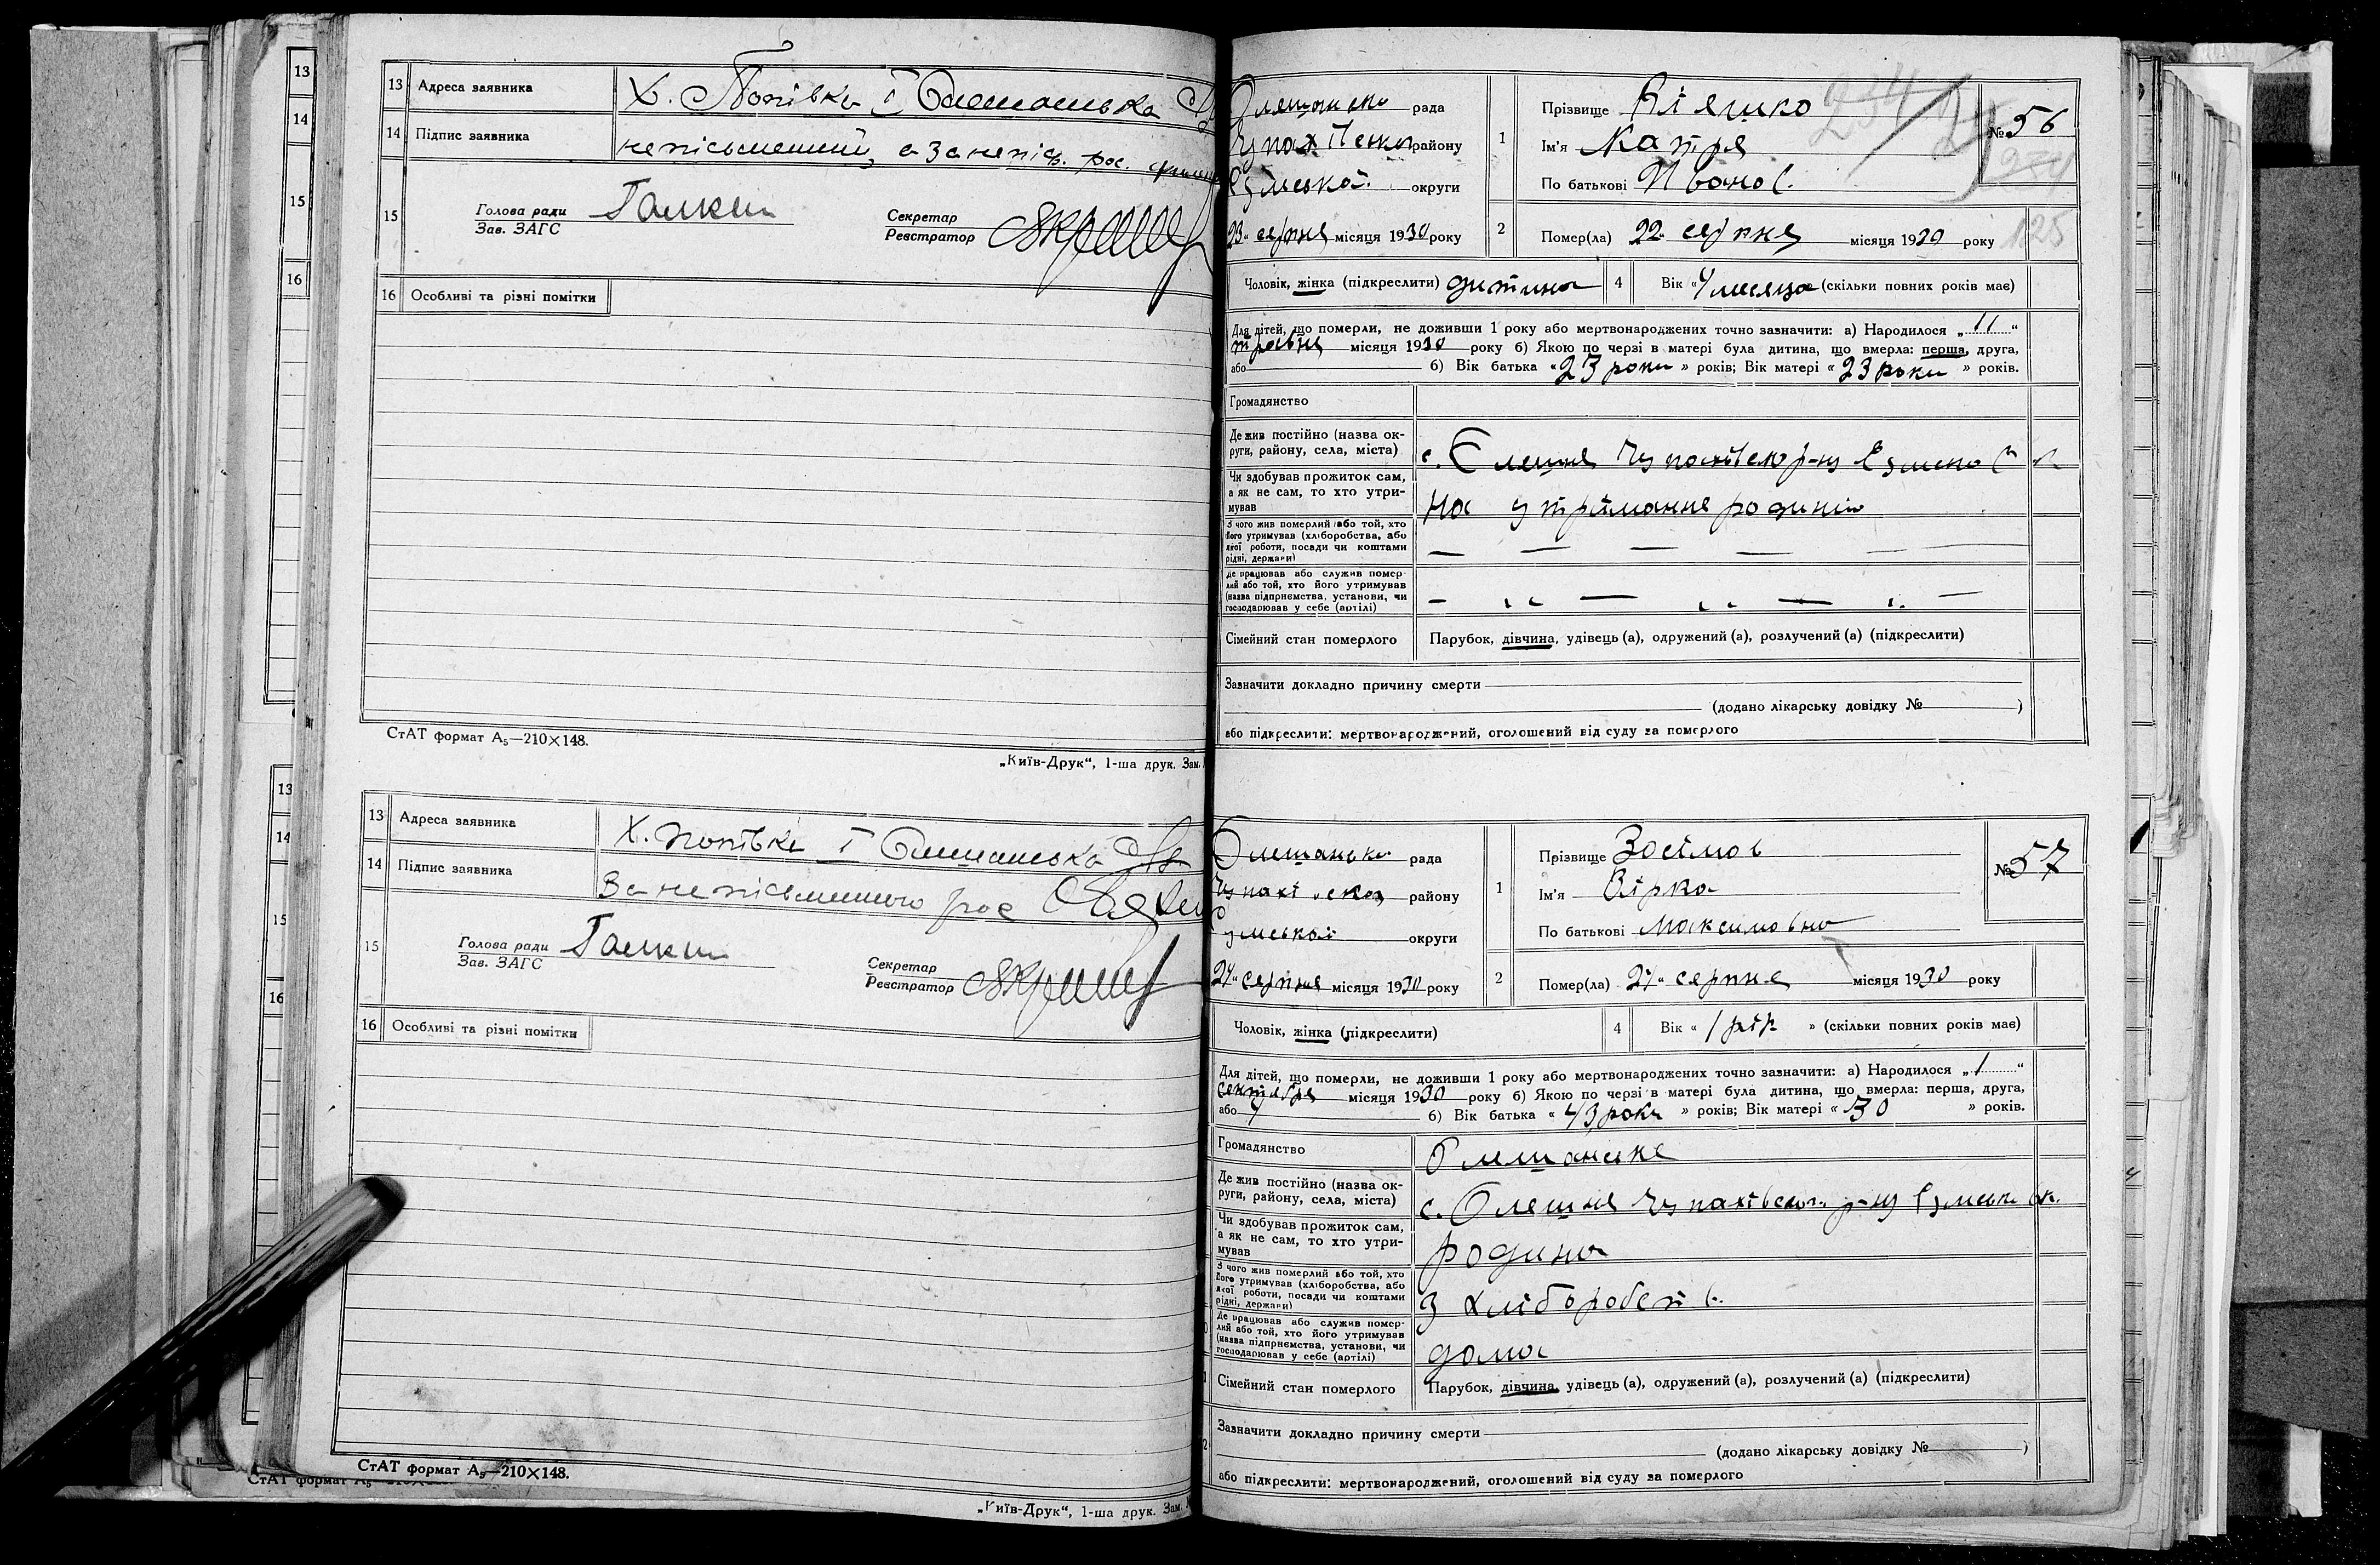 13
14
15
16
13
14
15
16
13 Адреса заявника Х. Попівка І Олешанська
14 Підпис заявника неписьменний, а за непісь. рос.
15 Голова ради
Зав. ЗАГС
Галкин
Секретар
Реєстратор
16 Особливі та різні помітки
СтАТ формат А5—210×148.
„Київ-Друк“, 1-ша друк. Зам.
13 Адреса заявника Х. Попівка І Олешанська
14 Підпис заявника За непісьменного рос
15 Голова ради
Зав. ЗАГС
Галкин
Секретар
Реєстратор
16 Особливі та різні помітки
СтАТ формат А5—210×148.
„Київ-Друк“, 1-ша друк. Зам.
СтАТ формат
Олешанська рада
Чупахівського району
Сумської округи
23 серпня місяця 1930 року
1 Прізвище
Ім'я Катря
По батькові Иванов.
№ 56
234
125
2 Помер(ла) 22 серпня місяця 1930 року
Чоловік, жінка (підкреслити) дитина 4 Вік « 4 месяца (скільки повних років має)
Для дітей, що померли, не доживши 1 року або мертвонароджених точно зазначити: а) Народилося „ 11 “
травня місяця 1930 року б) Якою по черзі в матері була дитина, що вмерла: перша, друга,
або б) Вік батька « 23 роки » років; Вік матері « 23 роки » років.
Громадянство
Де жив постійно (назва округи, району, села, міста) с. Олешня Чупахівськ р-ну Сумськ
Чи здобував прожиток сам, а як не сам, то хто утримував на утримання родині
З чого жив померлий або той, хто його утримував (хліборобства, або якої роботи, посади чи коштами рідні, держави) — — — — —
Де працював або служив померлий або той, хто його утримував (назва підприємства, установи, чи господарював у себе (артілі) — „ — „ — „ —
Сімейний стан померлого Парубок, дівчина, удівець (а), одружений (а), розлучений (а) (підкреслити)
Зазначити докладно причину смерти
(додано лікарську довідку № )
або підкреслити: мертвонароджений, оголошений від суду за померлого
Олешанська рада
Чупахівської району
Сумської округи
24 серпня місяця 1930 року
1 Прізвище Зоєімов
Ім'я Вірка
По батькові Максимовна
№ 57
2 Помер(ла) 24 серпня місяця 1930 року
Чоловік, жінка (підкреслити) 4 Вік « 1 рік » (скільки повних років має)
Для дітей, що померли, не доживши 1 року або мертвонароджених точно зазначити: а) Народилося „ 1 “
сентября місяця 1930 року б) Якою по черзі в матері була дитина, що вмерла: перша, друга,
або б) Вік батька « 43 роки » років; Вік матері « 30 » років.
Громадянство Олешанське
Де жив постійно (назва округи, району, села, міста) с. Олешня Чупахівськ. р-ну Сумськ ок.
Чи здобував прожиток сам, а як не сам, то хто утримував родина
З чого жив померлий або той, хто його утримував (хліборобства, або якої роботи, посади чи коштами рідні, держави) з хліборобств.
Де працював або служив померлий або той, хто його утримував (назва підприємства, установи, чи господарював у себе (артілі) дома
Сімейний стан померлого Парубок, дівчина, удівець (а), одружений (а), розлучений (а) (підкреслити)
Зазначити докладно причину смерти
(додано лікарську довідку № )
або підкреслити: мертвонароджений, оголошений від суду за померлого